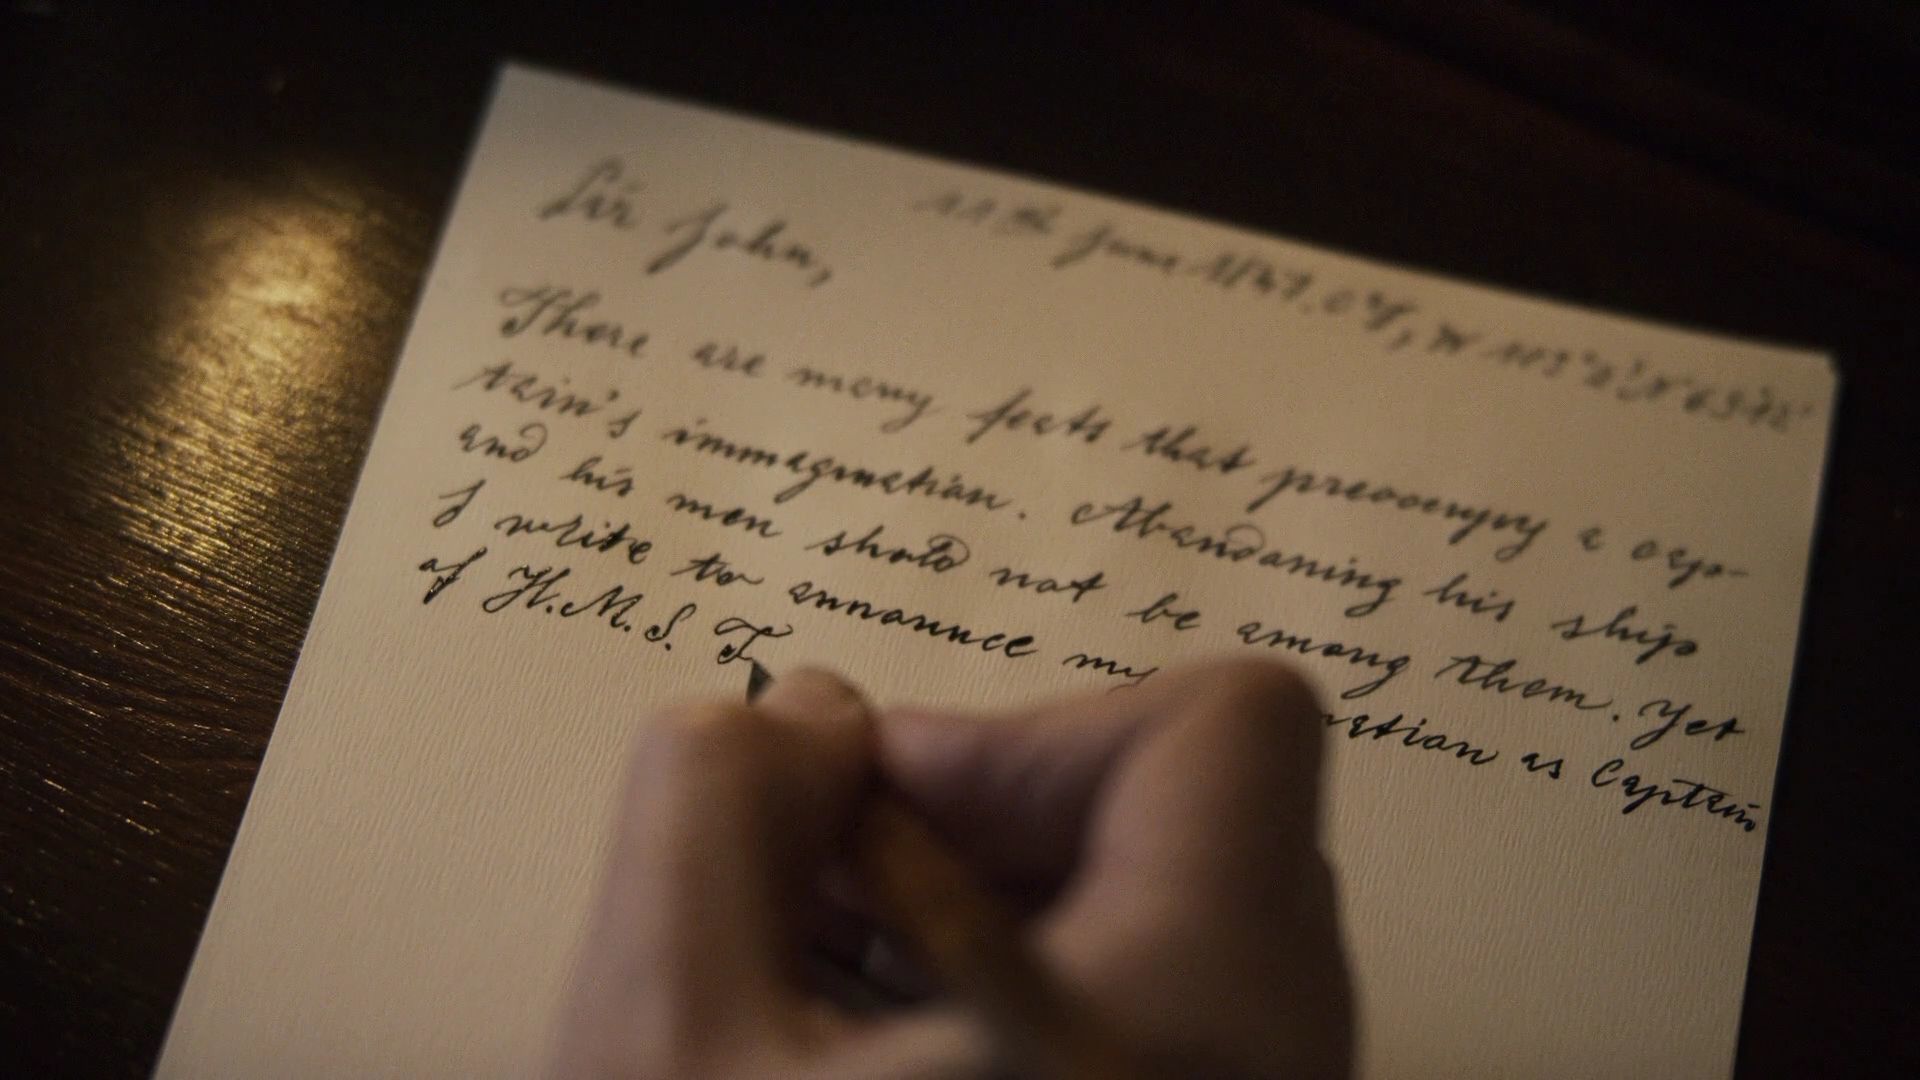 Sir John,
11th June 1847.
There are many feats that preoccupy a cap-
tain's immagination. Abandoning his ship
and his men shold not be among them. Yet
I write to announce my as Captain
of H.M.S. T